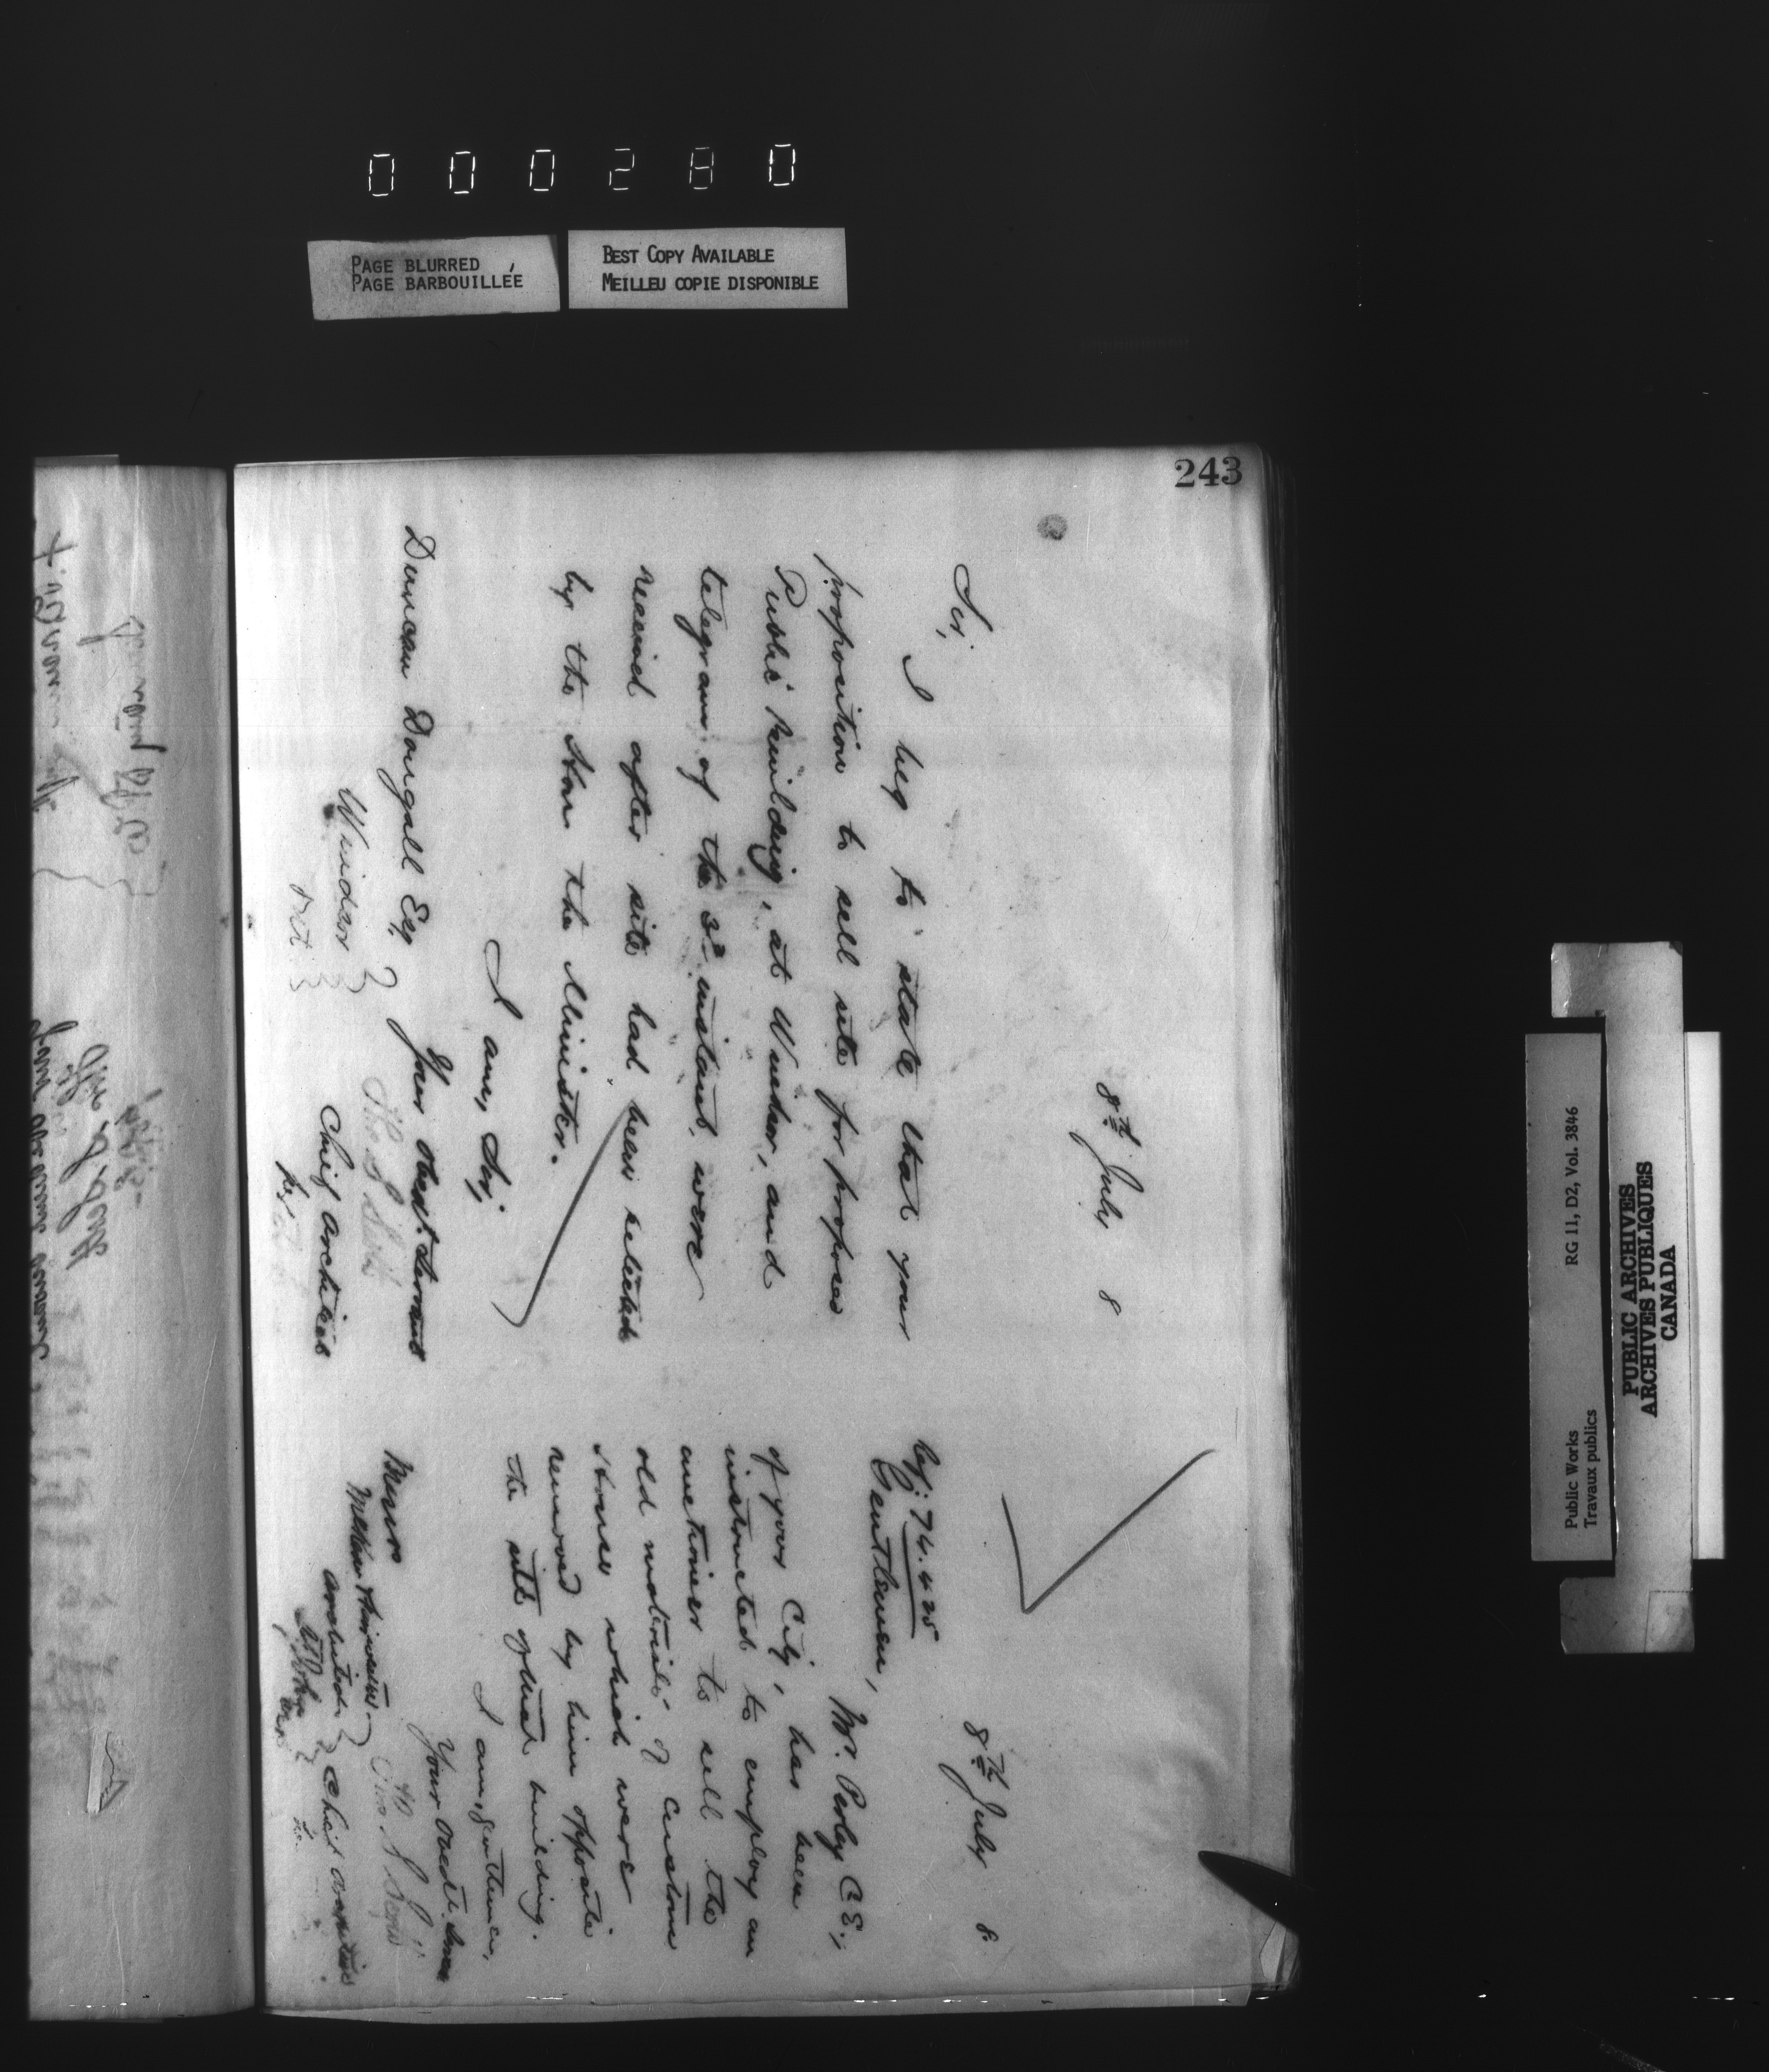 000280
PAGE BLURRED
PAGE BARBOUILLÉE
BEST COPY AVAILABLE
MEILLEU COPIE DISPONIBLE
243
8th July 8
Sir,
I beg to state that your
proposition to sell site for proposed
Public Building, at Windsor, and
telegram of the 3rd instant, were
received after site had been selected
by the Hon the Minister.
I am, Sir,
Your obedt. Servant
Chief Architect
Duncan Dougall Esq
Windsor
Ont
8th July 8
Ref: 74.425
Gentlemen,
Mr. Perley C.E.,
of your City, has been
instructed to employ an
auctioneer to sell the
old materials of Custom
House which were
removed by him opposite
the site of that building.
I am, gentlemen,
Your obedt. Serv
Chief Architect
Messrs
Architects
St John
Public Works
Travaux publics
RG 11, D2, Vol. 3846
PUBLIC ARCHIVES
ARCHIVES PUBLIQUES
CANADA